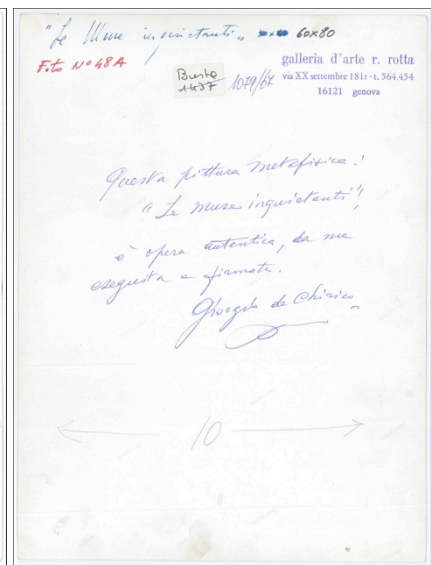 "Le Muse inquietanti" 60x80
Foto N° 48A
Busta
1437
1079/67
galleria d'arte r. rotta
via XX settembre 181r - t. 564.454
16121 genova
Questa pittura metafisica:
"Le muse inquietanti",
è opera autentica, da me
eseguita e firmata.
Giorgio de Chirico
10